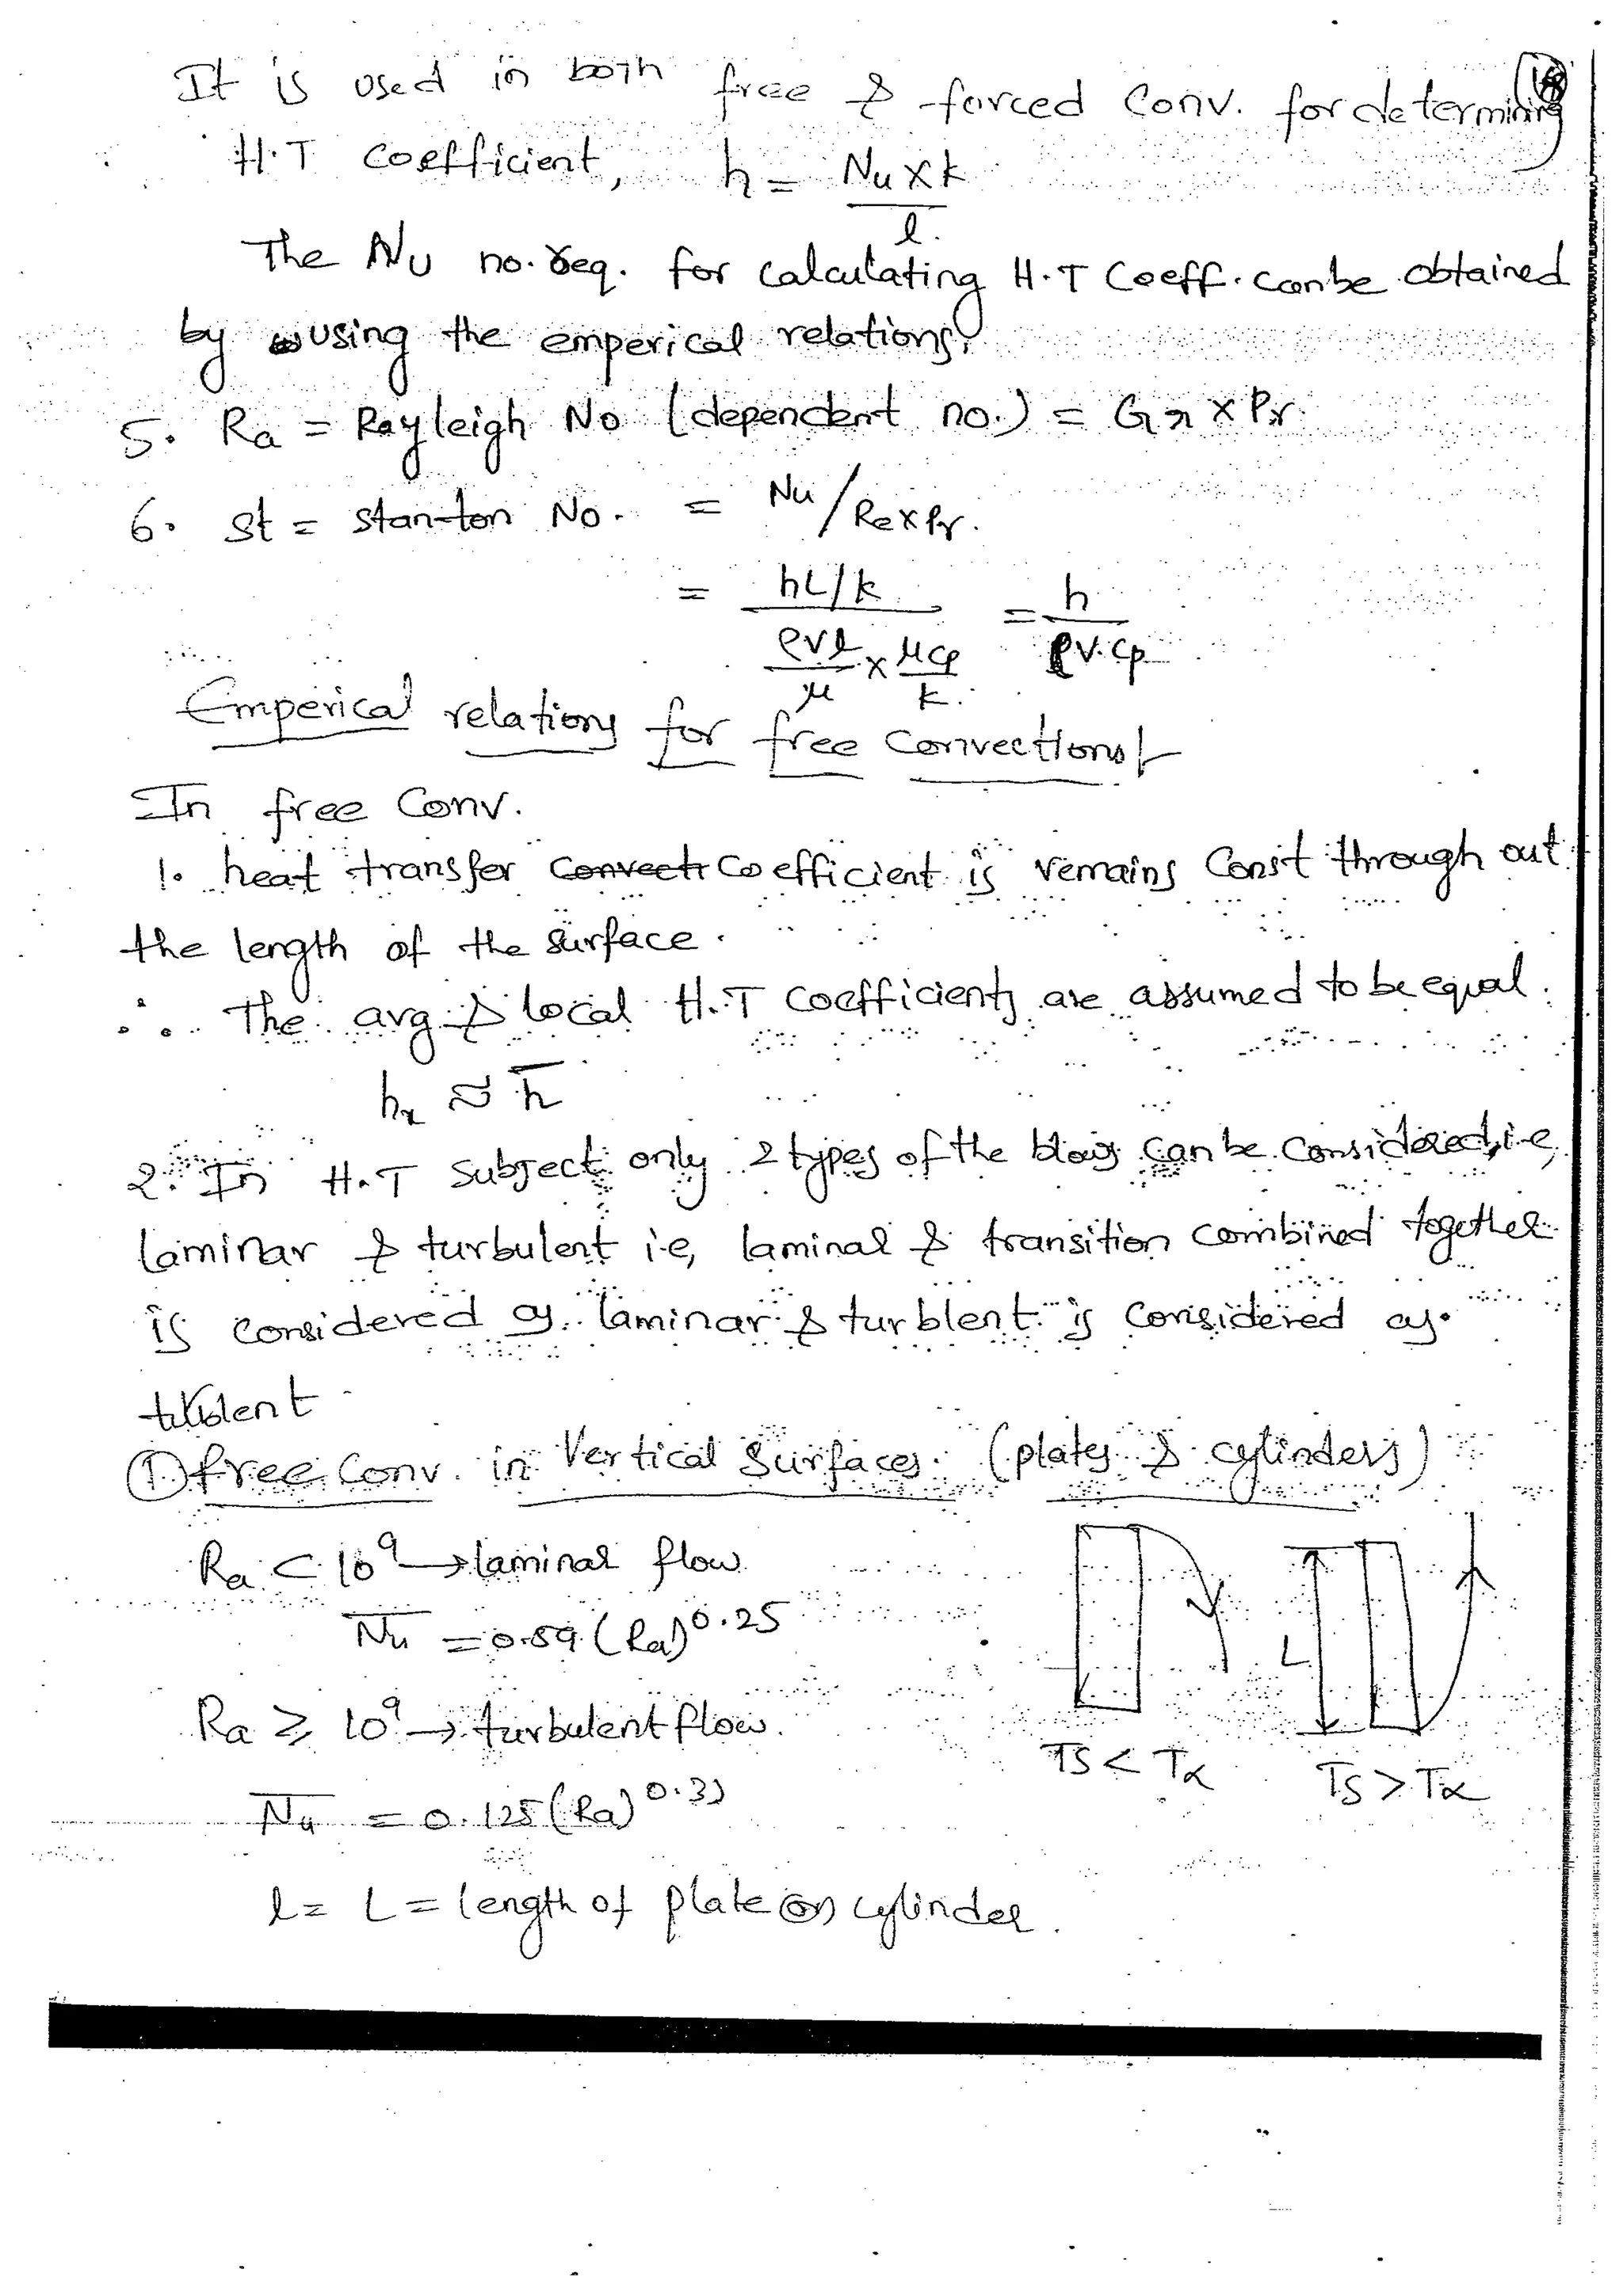 It is used in both free & forced Conv. for determining
H.T Coefficient, h = Nu x k / l.
The Nu no. req. for calculating H.T Coeff. can be obtained
by using the emperical relations.
5. Ra = Rayleigh No (dependent no.) = Gr x Pr
6. St = stan-ton No. = Nu / Re x Pr.
= hL/k / ρvl/μ x μcp/k. = h / ρv.cp
Emperical relations for free convections:-
In free Conv.
1. heat transfer Convecti Coefficient is remains Const through out
the length of the surface.
∴ The avg & local H.T Coefficients are assumed to be equal.
hx ≈ h̅
2. In H.T Subject only 2 types of the can be Considered, i.e,
laminar & turbulent i.e, laminar & transition combined together
is considered as laminar & turblent is considered as.
turblent
① free Conv. in Vertical Surfaces. (plates & cylinders)
Ra < 10⁹ → laminar flow
N̅u̅ = 0.59 (Ra)^0.25
Ra ≥ 10⁹ → turbulent flow.
L
Ts < Tα Ts > Tα
N̅u̅ = 0.125 (Ra)^0.33
l = L = length of plate (or) cylinder.